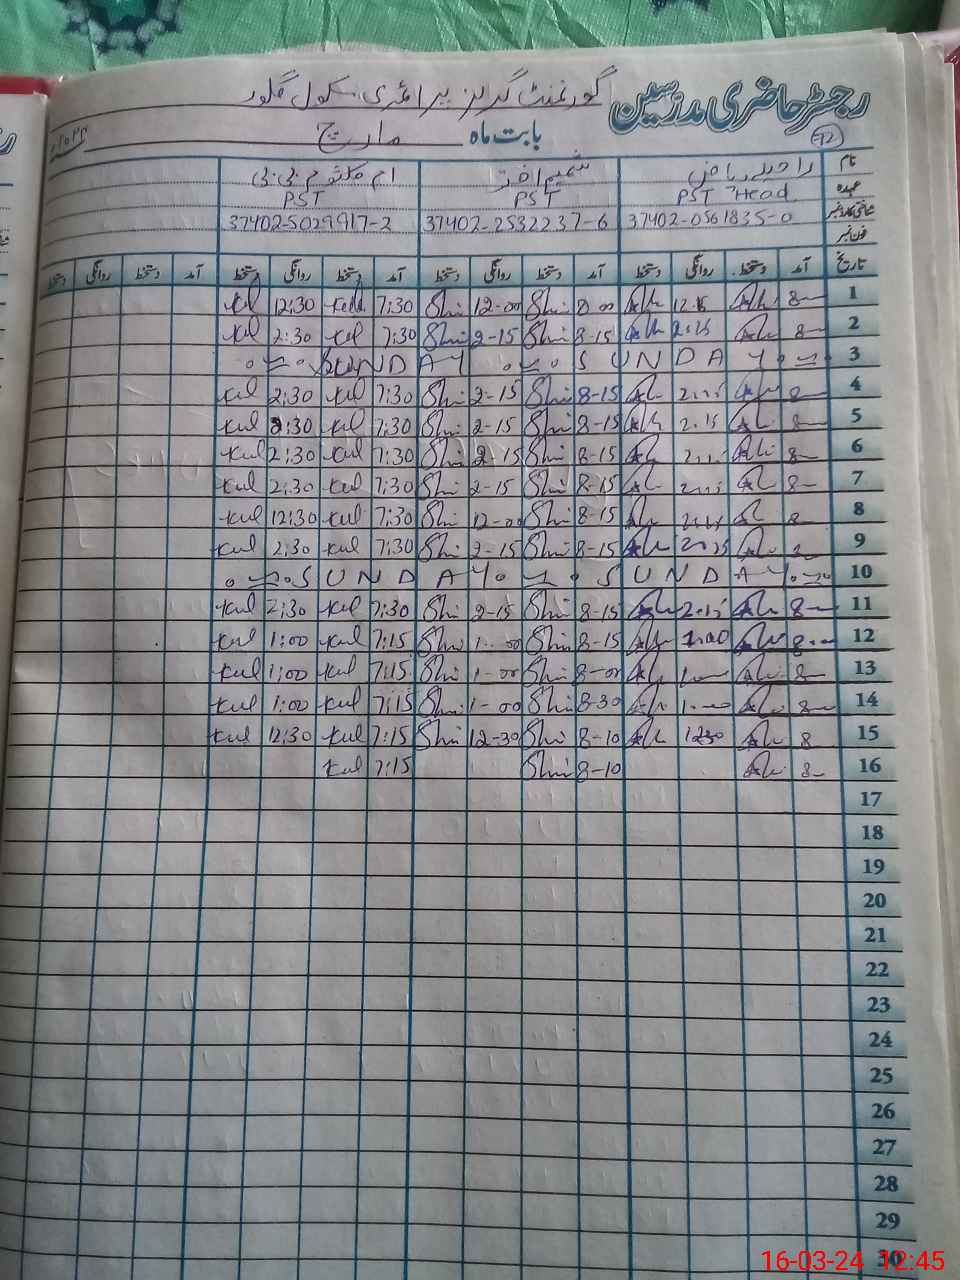 رجسٹر حاضری مدرسین گورنمنٹ گرلز پرائمری سکول
72
بابت ماہ مارچ
نام راحیلہ ریاض شمیم اختر
عہدہ PST Head PST PST
شناختی کارڈ نمبر 37402-0561835-0 37402-2532237-6 37402-5029917-2
فون نمبر
تاریخ آمد دستخط روانگی دستخط آمد دستخط روانگی دستخط آمد دستخط روانگی دستخط آمد دستخط روانگی دستخط
1 8 12.15 8-00 Shi 12-00 Shi 7:30 12:30 kul
2 8 2.15 8-15 Shi 2-15 Shi 7:30 kul 2:30 kul
3 SUNDAY SUNDAY
4 8 8-15 Shi 2-15 Shi 7:30 kul 2:30 kul
5 8 2.15 8-15 Shi 2-15 Shi 7:30 kul 2:30 kul
6 8 8-15 Shi 2-15 Shi 7:30 kul 2:30 kul
7 8 8-15 Shi 2-15 Shi 7:30 kul 2:30 kul
8 8 8-15 Shi 12-00 Shi 7:30 kul 12:30 kul
9 8-15 Shi 2-15 Shi 7:30 kul 2:30 kul
10 SUNDAY SUNDAY
11 8 2.15 8-15 Shi 2-15 Shi 7:30 kul 2:30 kul
12 8 1.00 8-15 Shi 1-00 Shi 7:15 kul 1:00 kul
13 8 1 8-00 Shi 1-00 Shi 7:15 kul 1:00 kul
14 8 1 8-30 Shi 1-00 Shi 7:15 kul 1:00 kul
15 8 1230 8-10 Shi 12-30 Shi 7:15 kul 12:30 kul
16 8 8-10 Shi 7:15 kul
17
18
19
20
21
22
23
24
25
26
27
28
29
30
16-03-24 12:45